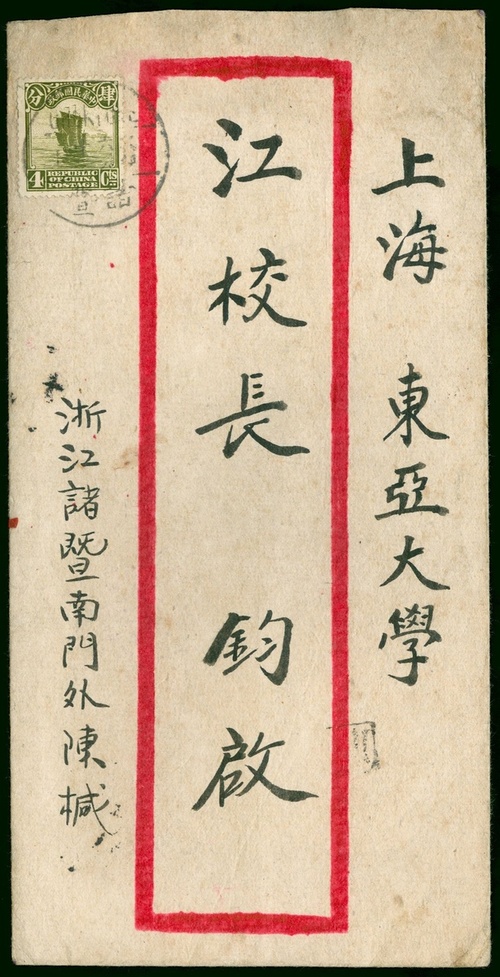 上海 東亞大學
江校長 鈞啟
浙江諸暨南門外陳椷
中華民國郵政
分 肆
4 Cts
REPUBLIC
OF CHINA
POSTAGE
諸暨